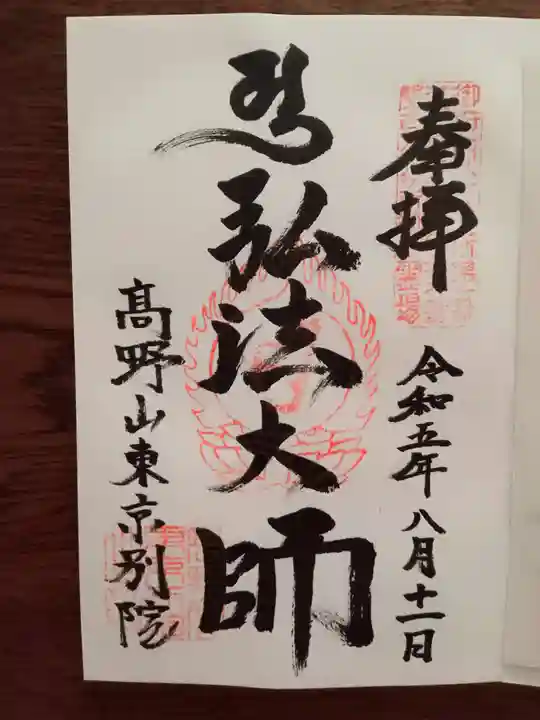 奉拝
令和五年八月十一日
弘法大師
高野山東京別院